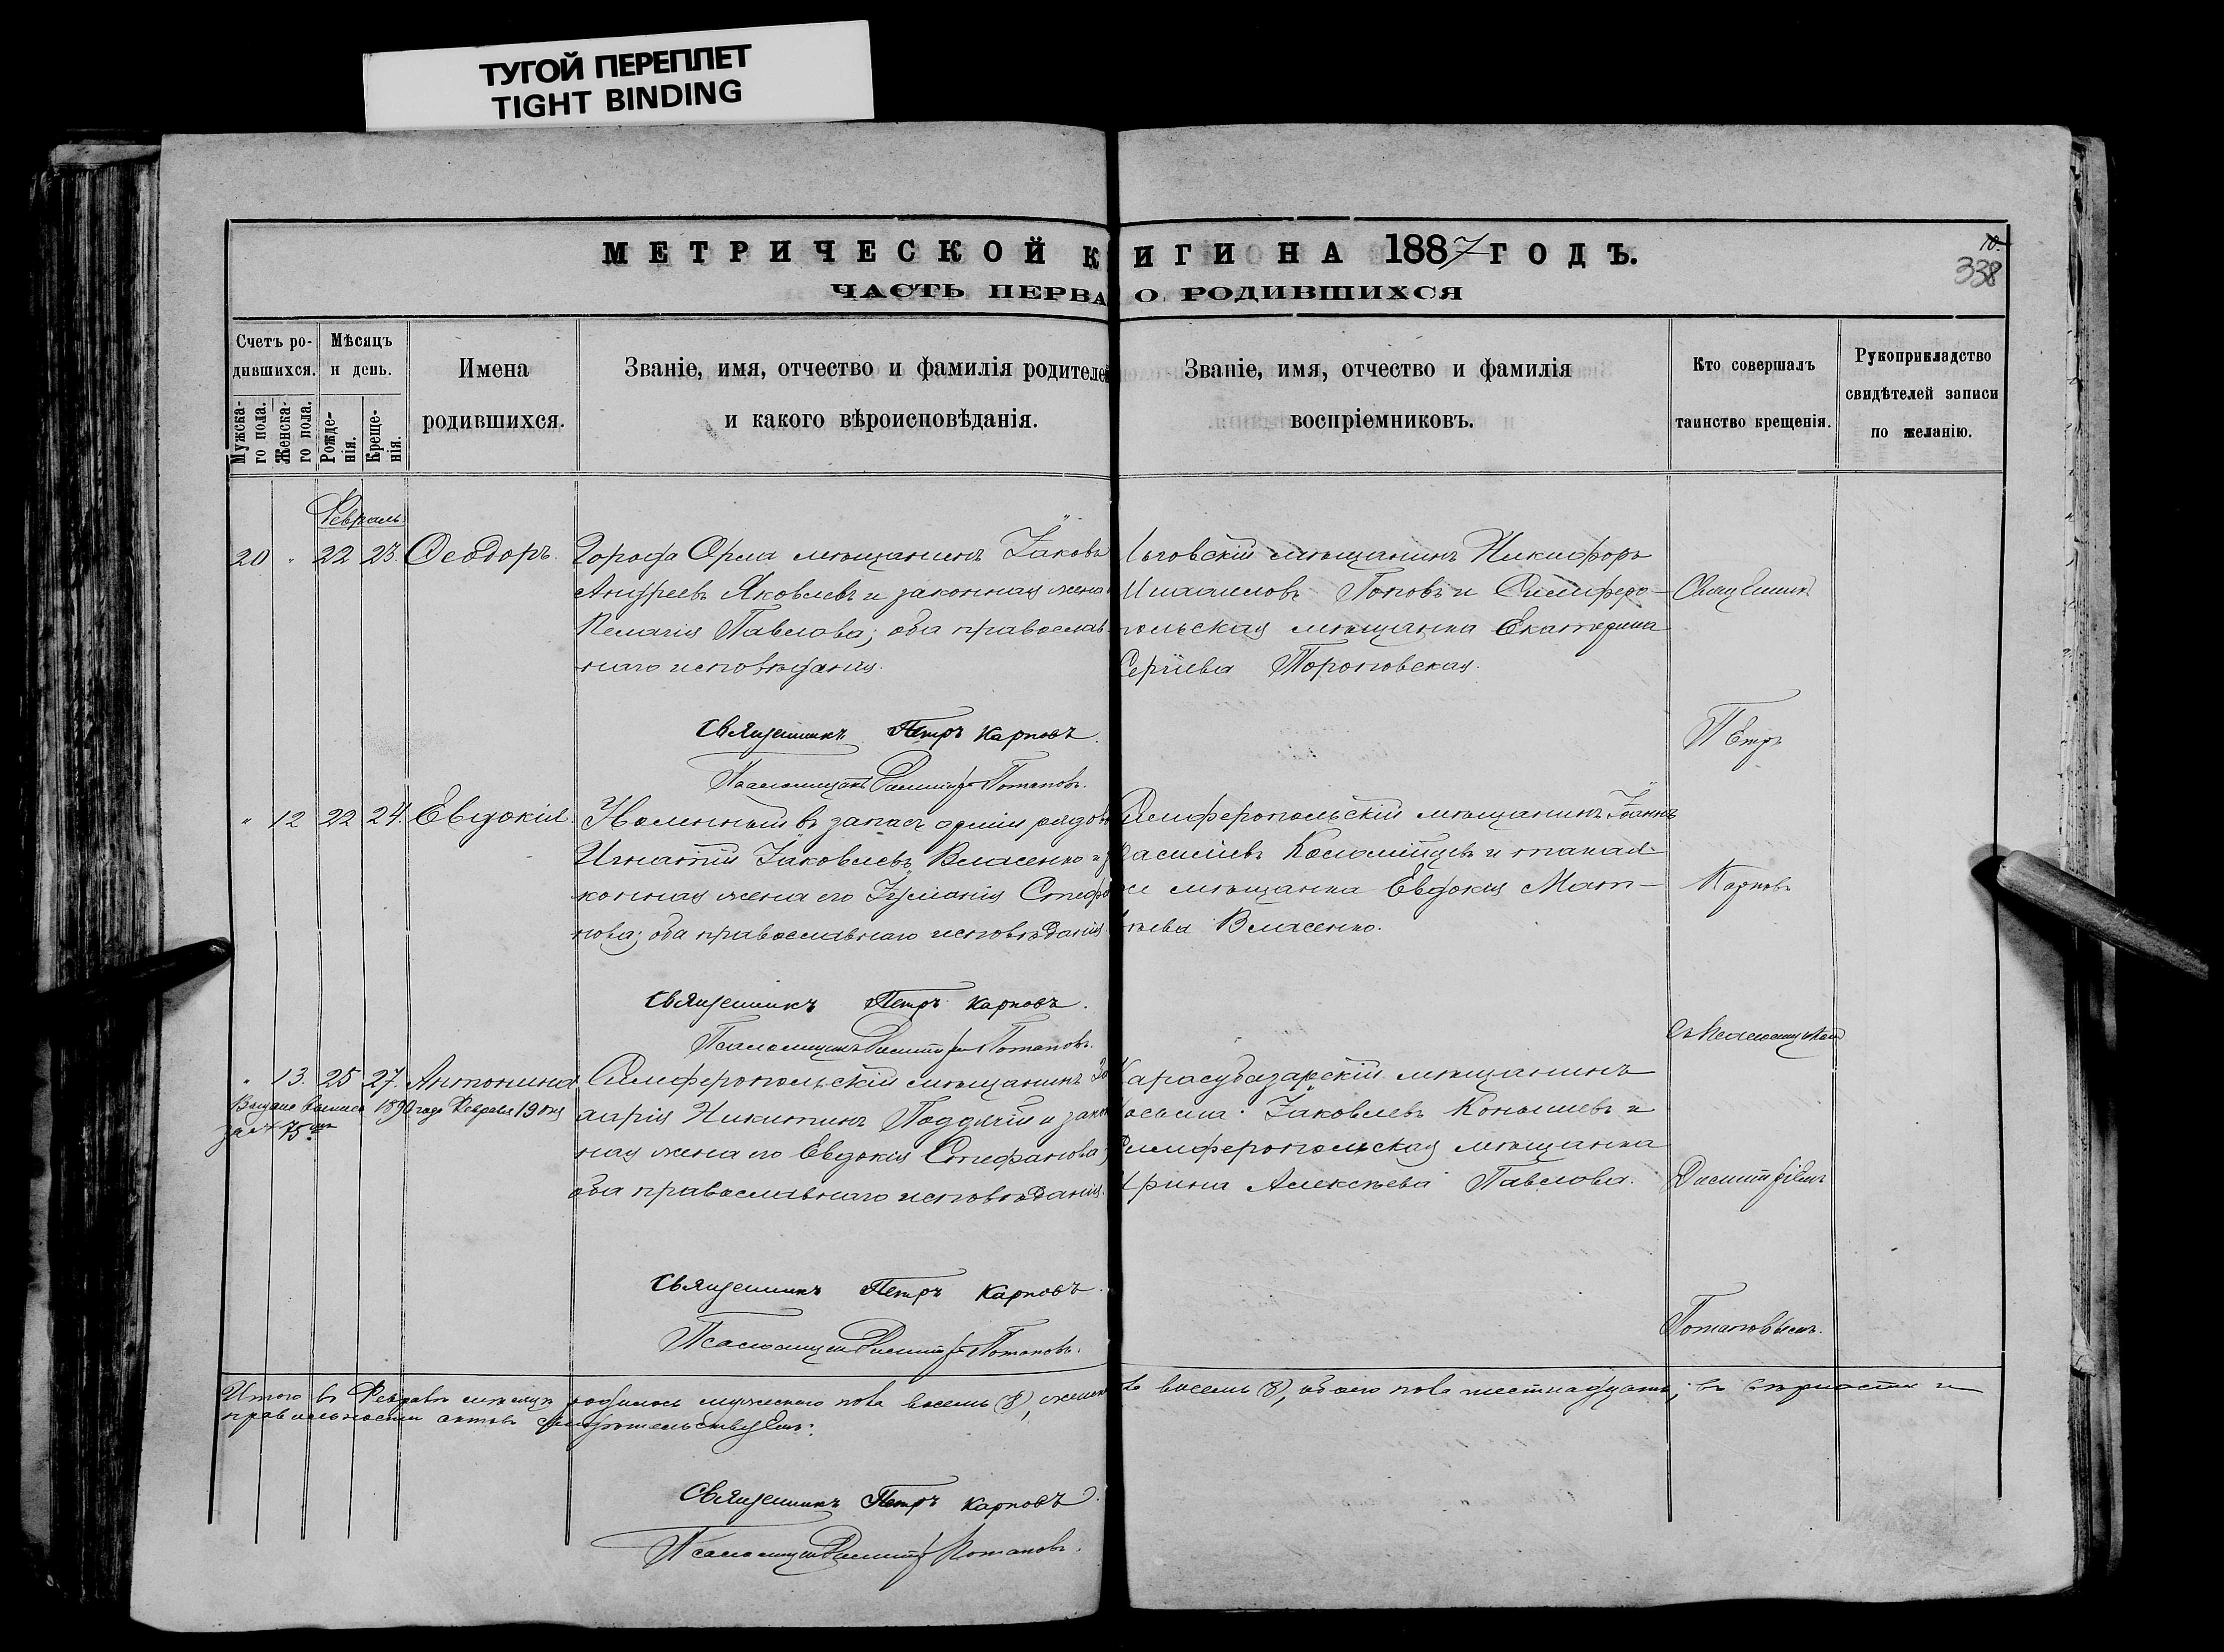 ТУГОЙ ПЕРЕПЛЕТ
TIGHT BINDING
МЕТРИЧЕСКОЙ К ИГИ НА 1887 ГОДЪ.
10.
338
ЧАСТЬ ПЕРВА О РОДИВШИХСЯ
Счетъ ро-
дившихся.
Мужска-
го пола.
Женска-
го пола.
Мѣсяцъ
и день.
Рожде-
нія.
Креще-
нія.
Имена
родившихся.
Званіе, имя, отчество и фамилія родителей
и какого вѣроисповѣданія.
Званіе, имя, отчество и фамилія
воспріемниковъ.
Кто совершалъ
таинство крещенія.
Рукоприкладство
свидѣтелей записи
по желанію.
Февраль
20 " 22 23. Ѳеодоръ.
Города Орла мѣщанинъ Іаковъ
Андреевъ Яковлевъ и законная жена
Пелагія Павлова; оба православ-
наго исповѣданія.
Священникъ Петръ Карповъ.
Псаломщикъ Димитрій Потаповъ.
мѣщанинъ Никифоръ
Поповъ и Симферо-
польская мѣщанка Екатерина
Сергіева
" 12 22 24. Евдокія.
въ запасъ арміи рядов
Игнатій Іаковлевъ Власенко и
конная жена его Стефа
нова; оба православнаго исповѣданія.
Священникъ Петръ Карповъ.
Псаломщикъ Димитрій Потаповъ.
Симферопольскій мѣщанинъ Іоаннъ
Василіевъ и такая-
же мѣщанка Евдокія Мат-
ѳѣева Власенко.
" 13. 25 27. Антонина
Выдана выпись 1890 года Февраля 19 дня
за № 75
Симферопольскій мѣщанинъ
Никитинъ и закон
ная жена его Евдокія Стефанова;
оба православнаго исповѣданія.
Священникъ Петръ Карповъ.
Псаломщикъ Димитрій Потаповъ.
Карасубазарскій мѣщанинъ
Косьма Іаковлевъ и
Симферопольская мѣщанка
Ирина Алексѣева Павлова.
Священникъ
Петръ
Карповъ
съ Псаломщикомъ
Димитріемъ
Потаповымъ.
Итого въ Февралѣ мѣсяцѣ родилось мужескаго пола восемь (8), женск восемь (8), обоего пола шестнадцать; въ вѣрности и
правильности актовъ свидѣтельствуемъ:
Священникъ Петръ Карповъ.
Псаломщикъ Димитрій Потаповъ.